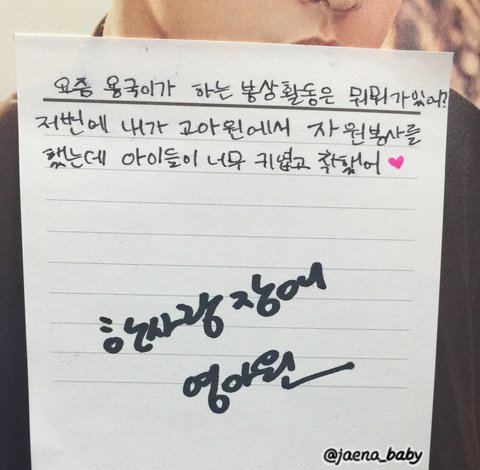 요즘 용국이가 하는 봉상활동은 뭐뭐가있어?
저번에 내가 고아원에서 자원봉사를
했는데 아이들이 너무 키엽고 착했어 ♥
한사랑 장애
영아원
@jaena_baby